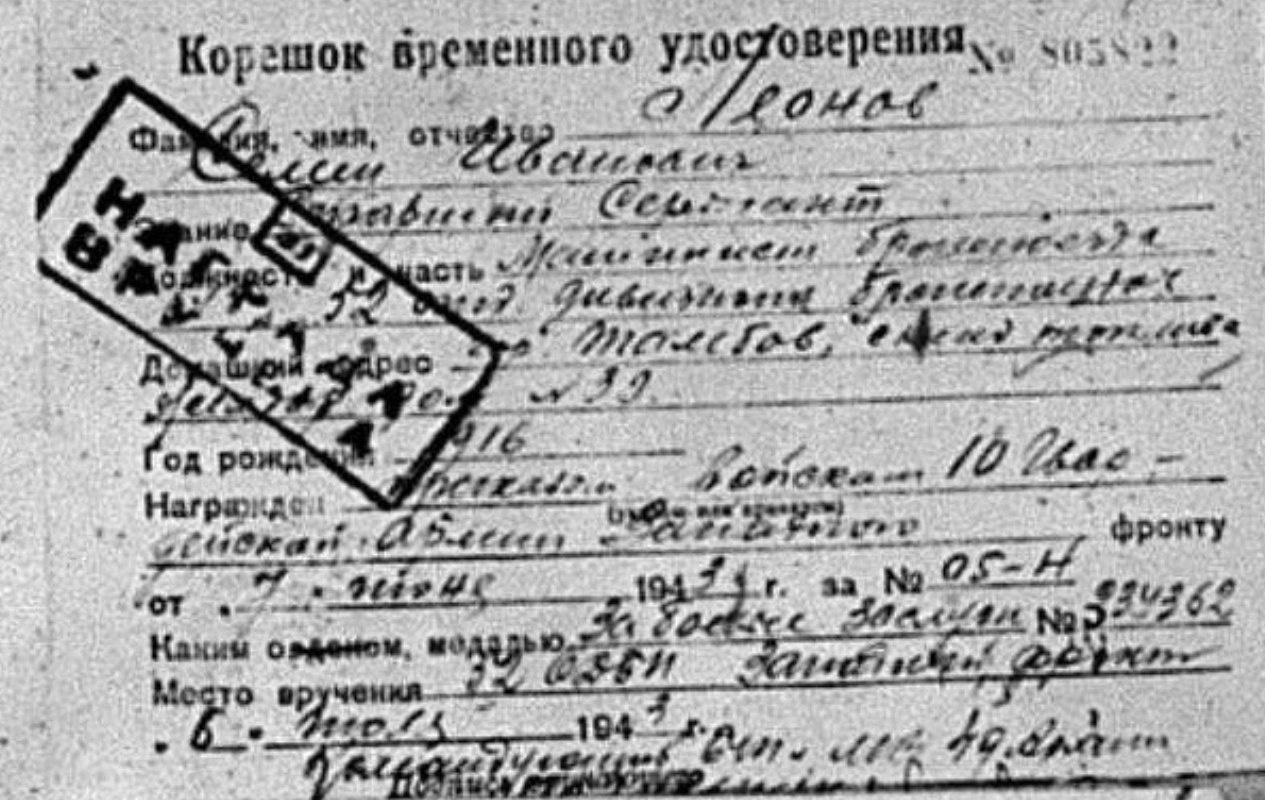 Корешок временного удостоверения № 805822
Леонов
Фамилия, имя, отчество
Семен Иванович
Звание Старший Сержант
Должность и часть Машинист бронепоезда
32 отд. дивизиона бронепоездов
Домашний адрес гор. Тамбов, склад топлива
дом № 39.
Год рождения 1916
Награжден приказом войскам 10 Гвар-
(указом или приказом)
дейской Армии Западного фронту
от 7 июня 1943 г. за № 05-Н
Каким орденом, медалью За боевые заслуги № 334362
Место вручения 32 ОДБП Западный фронт
6 июля 1943 г.